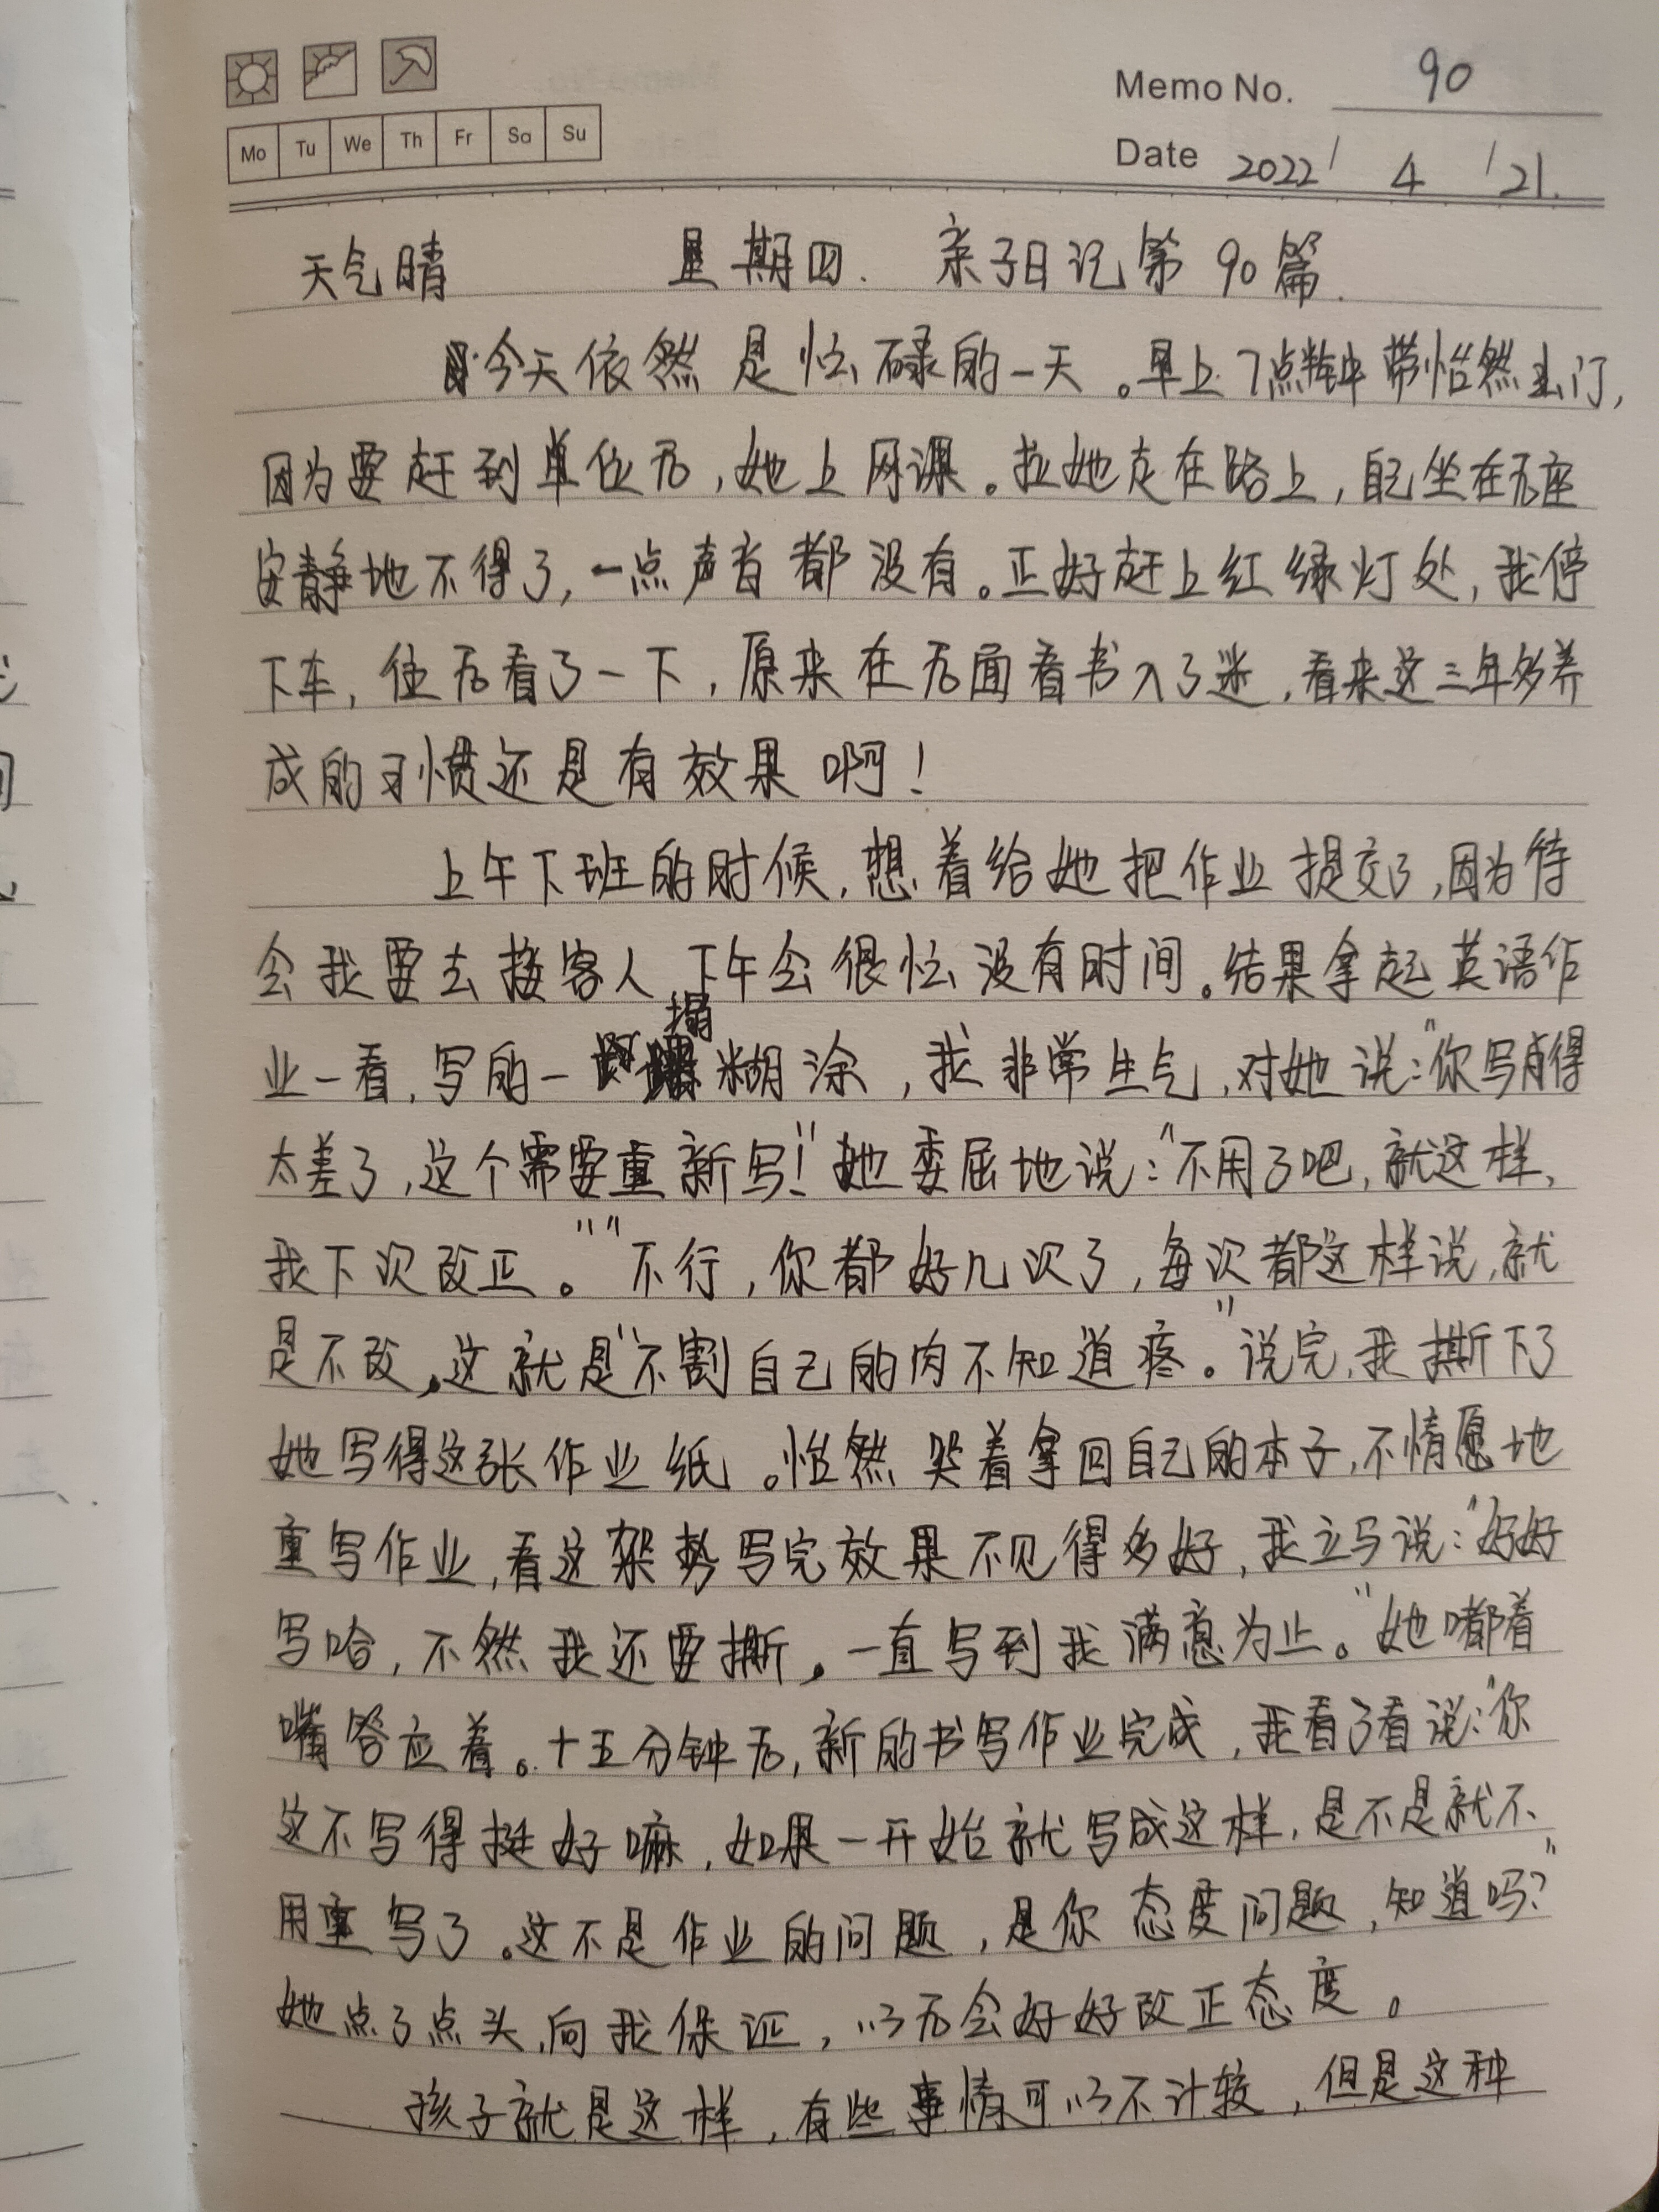 Memo No. 90
Mo Tu We Th Fr Sa Su
Date 2022/4/21.
天气晴 星期四. 亲子日记第90篇.
今天依然是忙碌的一天。早上7点钟带怡然出门,
因为要赶到单位后,她上网课。拉她走在路上,自己坐在后座
安静地不得了,一点声音都没有。正好赶上红绿灯处,我停
下车,往后看了一下,原来在后面看书入了迷,看来这三年多养
成的习惯还是有效果啊!
上午下班的时候,想着给她把作业提交了,因为待
会我要去接客人,下午会很忙没有时间。结果拿起英语作
业一看,写的一塌糊涂,我非常生气,对她说:"你写的得
太差了,这个需要重新写!"她委屈地说:"不用了吧,就这样,
我下次改正。""不行,你都好几次了,每次都这样说,就
是不改,这就是"不割自己的肉不知道疼。"说完,我撕下了
她写得这张作业纸。怡然哭着拿回自己的本子,不情愿地
重写作业,看这架势写完效果不见得多好,我立马说:"好好
写哈,不然我还要撕,一直写到我满意为止。"她嘟着
嘴答应着。十五分钟后,新的书写作业完成,我看了看说:"你
这不写得挺好嘛,如果一开始就写成这样,是不是就不
用重写了。这不是作业的问题,是你态度问题,知道吗?"
她点了点头,向我保证,以后会好好改正态度。
孩子就是这样,有些事情可以不计较,但是这种